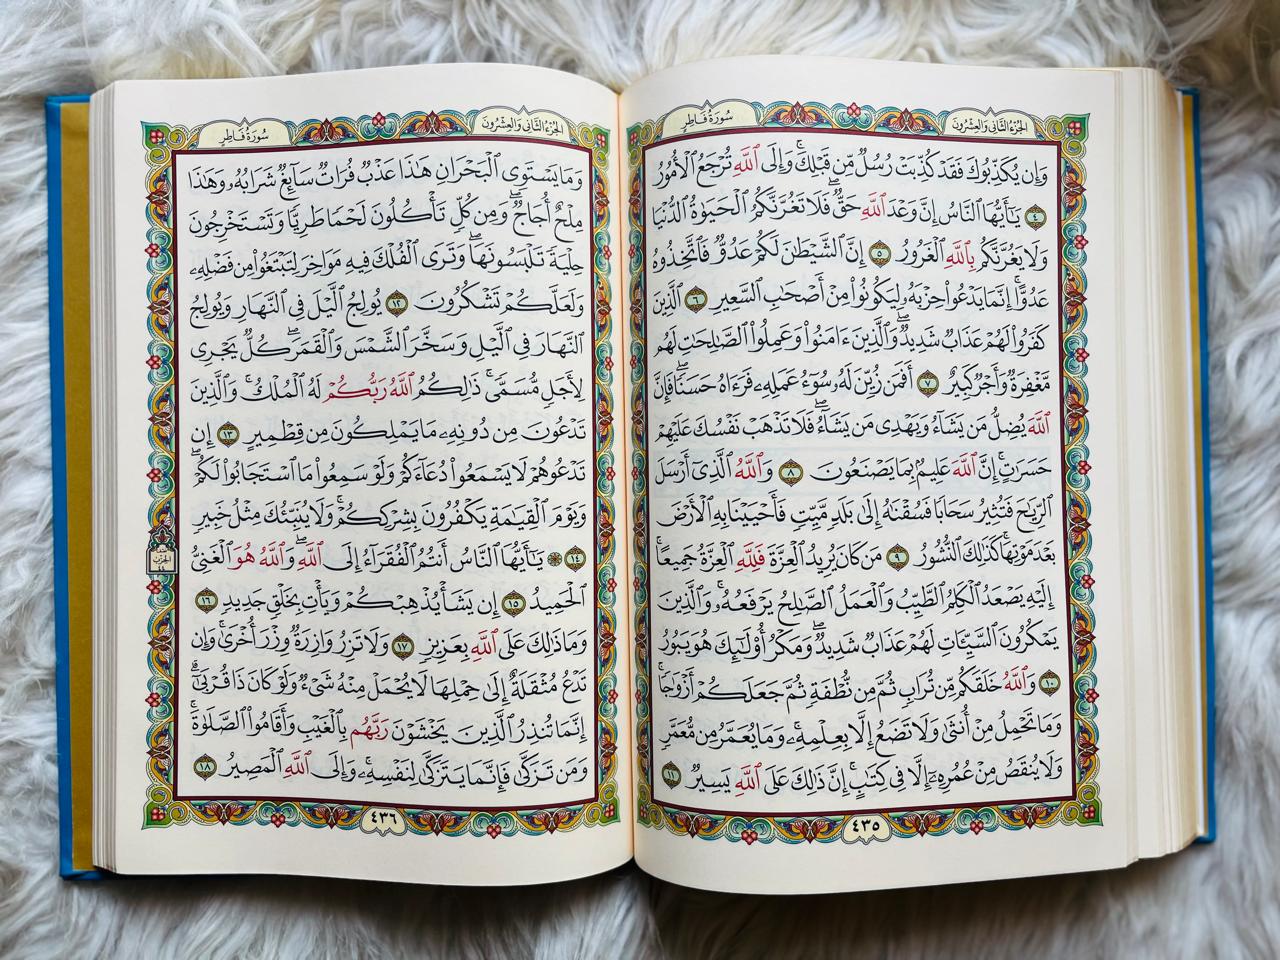 الجزء الثاني والعشرون
سورة فاطر
وَإِن يُكَذِّبُوكَ فَقَدْ كُذِّبَتْ رُسُلٌ مِّن قَبْلِكَ ۚ وَإِلَى ٱللَّهِ تُرْجَعُ ٱلْأُمُورُ
٤ يَٰٓأَيُّهَا ٱلنَّاسُ إِنَّ وَعْدَ ٱللَّهِ حَقٌّ ۖ فَلَا تَغُرَّنَّكُمُ ٱلْحَيَوٰةُ ٱلدُّنْيَا
وَلَا يَغُرَّنَّكُم بِٱللَّهِ ٱلْغَرُورُ ٥ إِنَّ ٱلشَّيْطَٰنَ لَكُمْ عَدُوٌّ فَٱتَّخِذُوهُ
عَدُوًّا ۚ إِنَّمَا يَدْعُوا۟ حِزْبَهُۥ لِيَكُونُوا۟ مِنْ أَصْحَٰبِ ٱلسَّعِيرِ ٦ ٱلَّذِينَ
كَفَرُوا۟ لَهُمْ عَذَابٌ شَدِيدٌ ۖ وَٱلَّذِينَ ءَامَنُوا۟ وَعَمِلُوا۟ ٱلصَّٰلِحَٰتِ لَهُم
مَّغْفِرَةٌ وَأَجْرٌ كَبِيرٌ ٧ أَفَمَن زُيِّنَ لَهُۥ سُوٓءُ عَمَلِهِۦ فَرَءَاهُ حَسَنًا ۖ فَإِنَّ
ٱللَّهَ يُضِلُّ مَن يَشَآءُ وَيَهْدِى مَن يَشَآءُ ۖ فَلَا تَذْهَبْ نَفْسُكَ عَلَيْهِمْ
حَسَرَٰتٍ ۚ إِنَّ ٱللَّهَ عَلِيمٌۢ بِمَا يَصْنَعُونَ ٨ وَٱللَّهُ ٱلَّذِىٓ أَرْسَلَ
ٱلرِّيَٰحَ فَتُثِيرُ سَحَابًا فَسُقْنَٰهُ إِلَىٰ بَلَدٍ مَّيِّتٍ فَأَحْيَيْنَا بِهِ ٱلْأَرْضَ
بَعْدَ مَوْتِهَا ۚ كَذَٰلِكَ ٱلنُّشُورُ ٩ مَن كَانَ يُرِيدُ ٱلْعِزَّةَ فَلِلَّهِ ٱلْعِزَّةُ جَمِيعًا ۚ
إِلَيْهِ يَصْعَدُ ٱلْكَلِمُ ٱلطَّيِّبُ وَٱلْعَمَلُ ٱلصَّٰلِحُ يَرْفَعُهُۥ ۚ وَٱلَّذِينَ
يَمْكُرُونَ ٱلسَّيِّـَٔاتِ لَهُمْ عَذَابٌ شَدِيدٌ ۖ وَمَكْرُ أُو۟لَٰٓئِكَ هُوَ يَبُورُ
١٠ وَٱللَّهُ خَلَقَكُم مِّن تُرَابٍ ثُمَّ مِن نُّطْفَةٍ ثُمَّ جَعَلَكُمْ أَزْوَٰجًا ۚ
وَمَا تَحْمِلُ مِنْ أُنثَىٰ وَلَا تَضَعُ إِلَّا بِعِلْمِهِۦ ۚ وَمَا يُعَمَّرُ مِن مُّعَمَّرٍ
وَلَا يُنقَصُ مِنْ عُمُرِهِۦٓ إِلَّا فِى كِتَٰبٍ ۚ إِنَّ ذَٰلِكَ عَلَى ٱللَّهِ يَسِيرٌ ١١
٤٣٥
الجزء الثاني والعشرون
سورة فاطر
وَمَا يَسْتَوِى ٱلْبَحْرَانِ هَٰذَا عَذْبٌ فُرَاتٌ سَآئِغٌ شَرَابُهُۥ وَهَٰذَا
مِلْحٌ أُجَاجٌ ۖ وَمِن كُلٍّ تَأْكُلُونَ لَحْمًا طَرِيًّا وَتَسْتَخْرِجُونَ
حِلْيَةً تَلْبَسُونَهَا ۖ وَتَرَى ٱلْفُلْكَ فِيهِ مَوَاخِرَ لِتَبْتَغُوا۟ مِن فَضْلِهِۦ
وَلَعَلَّكُمْ تَشْكُرُونَ ١٢ يُولِجُ ٱلَّيْلَ فِى ٱلنَّهَارِ وَيُولِجُ
ٱلنَّهَارَ فِى ٱلَّيْلِ وَسَخَّرَ ٱلشَّمْسَ وَٱلْقَمَرَ ۖ كُلٌّ يَجْرِى
لِأَجَلٍ مُّسَمًّى ۚ ذَٰلِكُمُ ٱللَّهُ رَبُّكُمْ لَهُ ٱلْمُلْكُ ۚ وَٱلَّذِينَ
تَدْعُونَ مِن دُونِهِۦ مَا يَمْلِكُونَ مِن قِطْمِيرٍ ١٣ إِن
تَدْعُوهُمْ لَا يَسْمَعُوا۟ دُعَآءَكُمْ وَلَوْ سَمِعُوا۟ مَا ٱسْتَجَابُوا۟ لَكُمْ ۖ
وَيَوْمَ ٱلْقِيَٰمَةِ يَكْفُرُونَ بِشِرْكِكُمْ ۚ وَلَا يُنَبِّئُكَ مِثْلُ خَبِيرٍ
١٤ ۞ يَٰٓأَيُّهَا ٱلنَّاسُ أَنتُمُ ٱلْفُقَرَآءُ إِلَى ٱللَّهِ ۖ وَٱللَّهُ هُوَ ٱلْغَنِىُّ
ٱلْحَمِيدُ ١٥ إِن يَشَأْ يُذْهِبْكُمْ وَيَأْتِ بِخَلْقٍ جَدِيدٍ ١٦
وَمَا ذَٰلِكَ عَلَى ٱللَّهِ بِعَزِيزٍ ١٧ وَلَا تَزِرُ وَازِرَةٌ وِزْرَ أُخْرَىٰ ۚ وَإِن
تَدْعُ مُثْقَلَةٌ إِلَىٰ حِمْلِهَا لَا يُحْمَلْ مِنْهُ شَىْءٌ وَلَوْ كَانَ ذَا قُرْبَىٰٓ ۗ
إِنَّمَا تُنذِرُ ٱلَّذِينَ يَخْشَوْنَ رَبَّهُم بِٱلْغَيْبِ وَأَقَامُوا۟ ٱلصَّلَوٰةَ ۚ
وَمَن تَزَكَّىٰ فَإِنَّمَا يَتَزَكَّىٰ لِنَفْسِهِۦ ۚ وَإِلَى ٱللَّهِ ٱلْمَصِيرُ ١٨
٤٣٦